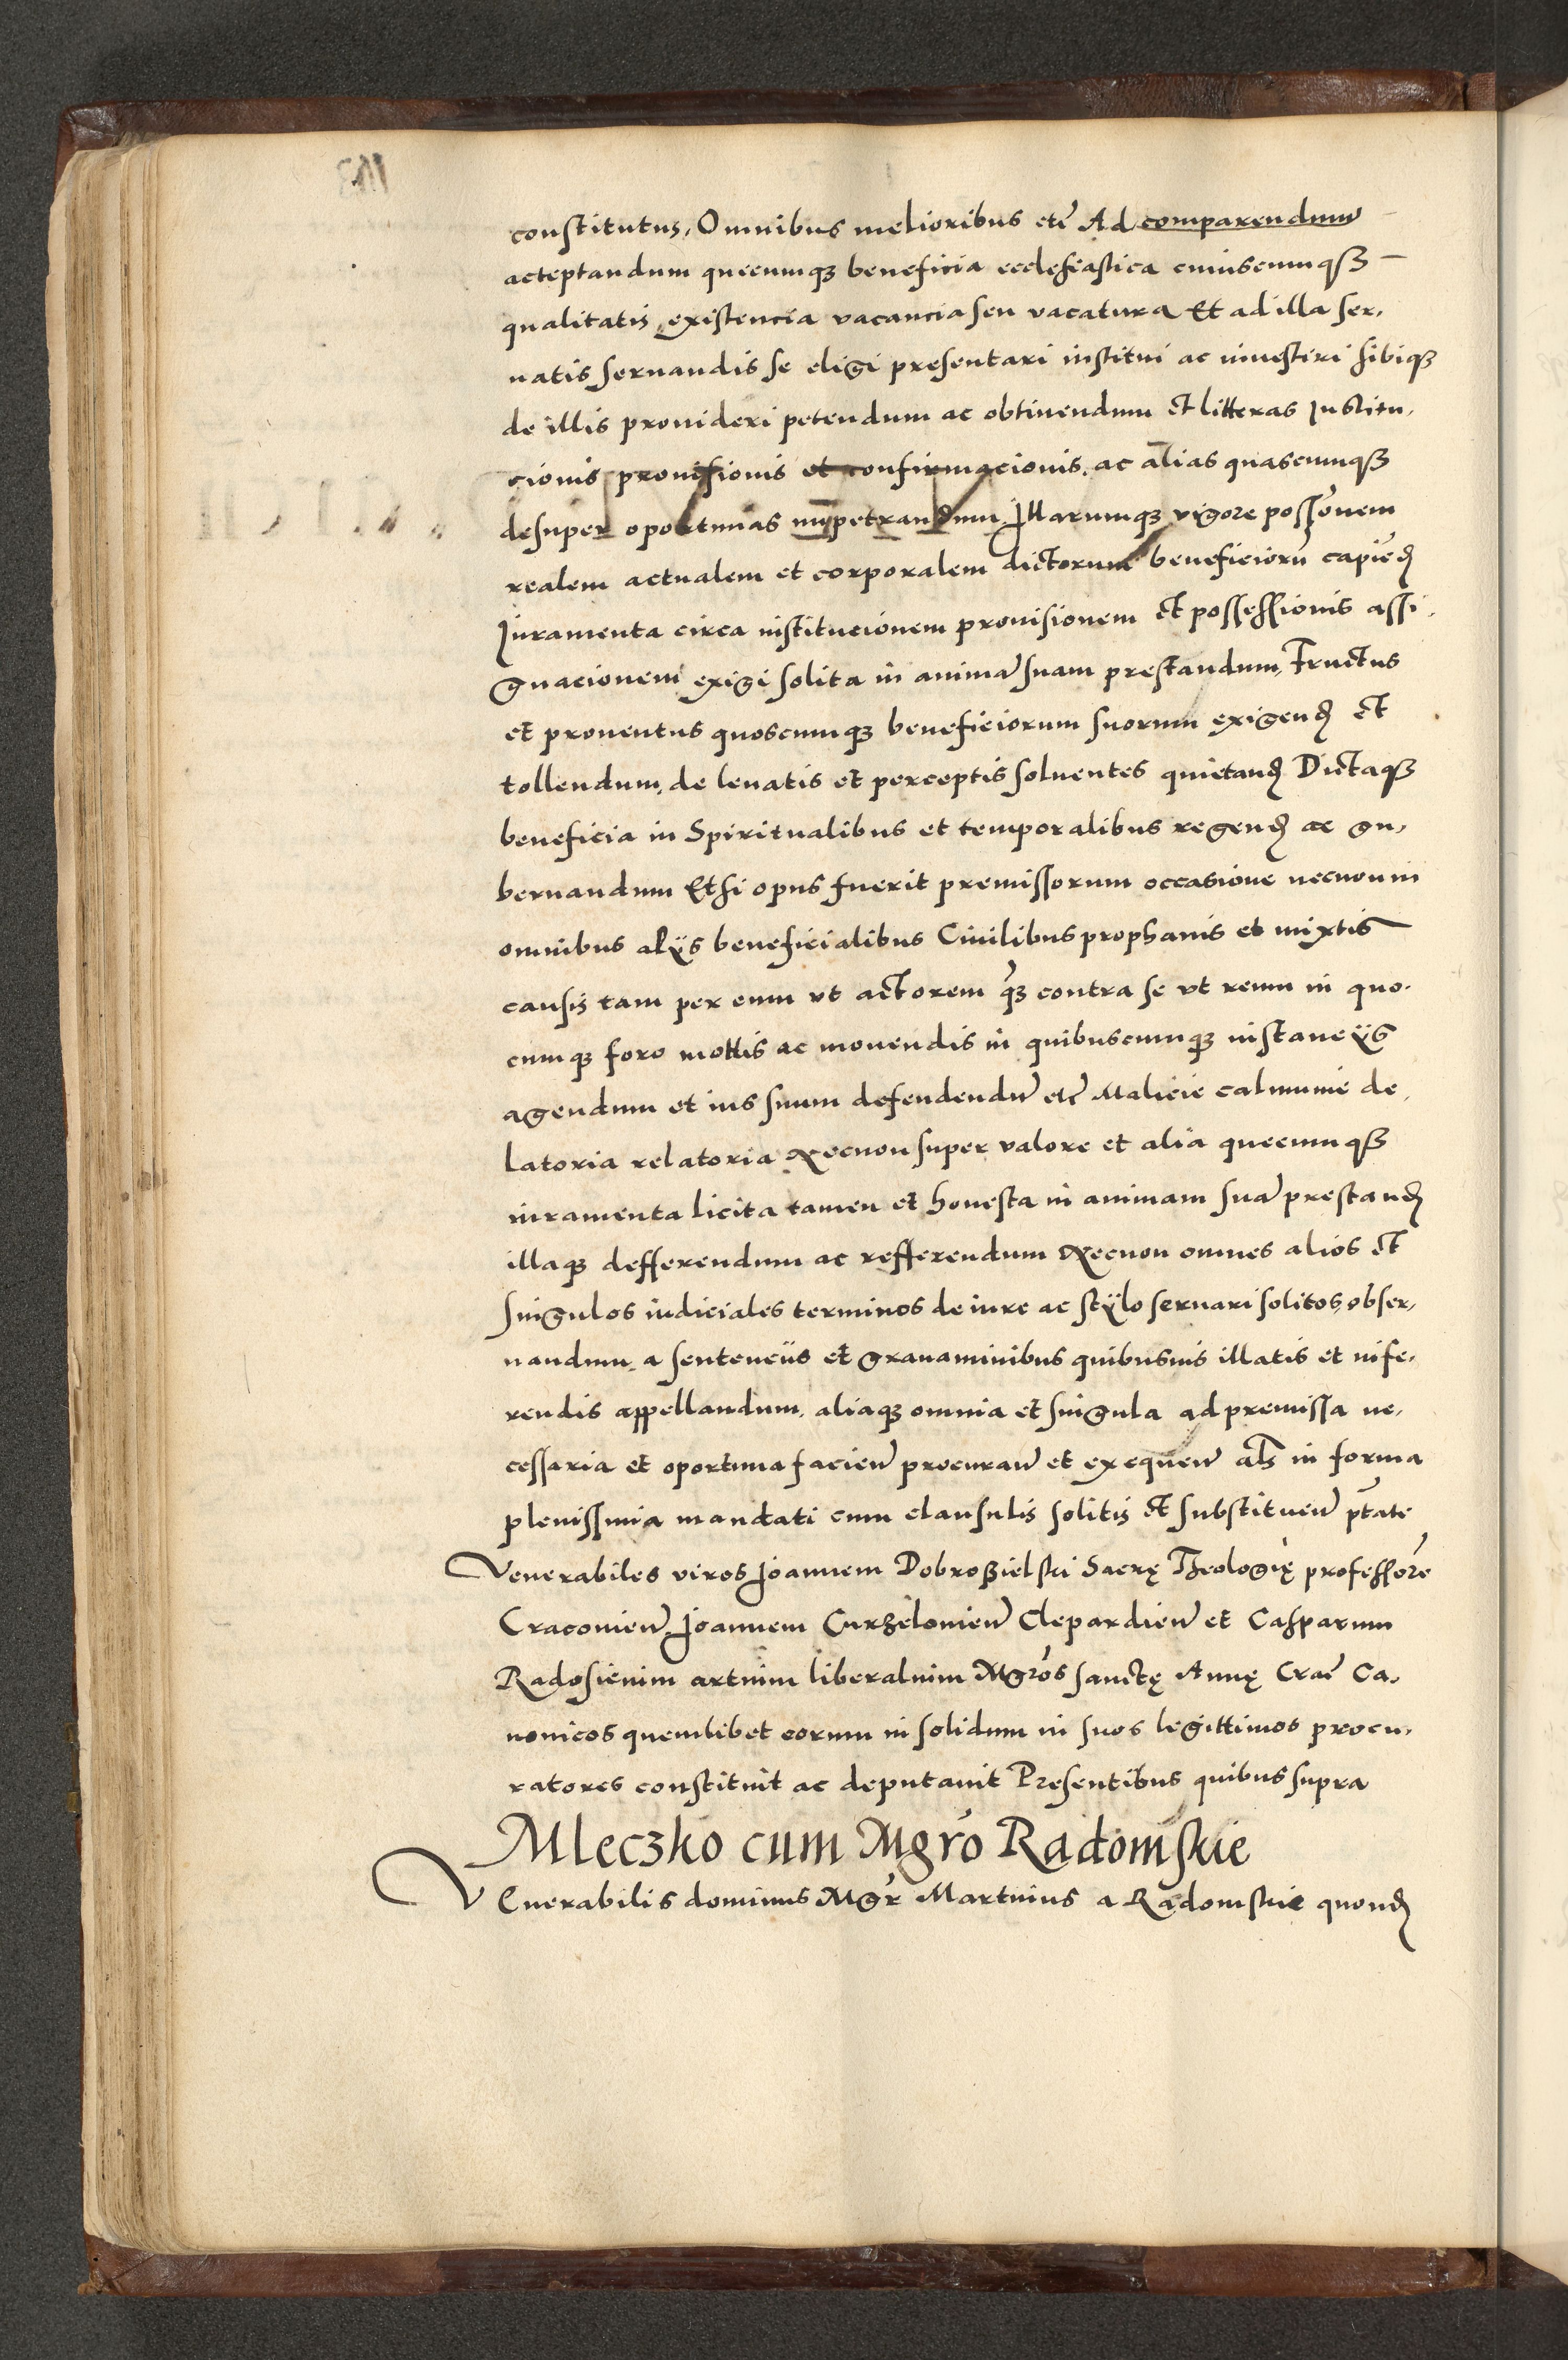 constitutus, Omnibus melioribus etc̃ Ad comparendum
acceptandum quecumqꝫ beneficia ecclesiastica cuiuscumqꝫ
qualitatis existencia vacancia seu vacatura Et ad illa ser,
uatis seruandis se eligi presentari institui ac inuestiri sibiqꝫ
de illis prouideri petendum ac obtinendum et litteras Institu,
cionis prouisionis et confirmacionis, ac alias quascumqꝫ
desuper oportunas impetrandum, Illarumqꝫ vigore possōnem
realem actualem et corporalem dictorum beneficiorū capieñ
Iuramenta circa institucionem prouisionem et possessionis assi,
gnacionem exigi solita in animã suam prestandum, Fructus
et prouentus quoscumqꝫ beneficiorum suorum exigenđ et
tollendum, de leuatis et perceptis soluentes quietanđ Dictaqꝫ
beneficia in Spiritualibus et temporalibus regenđ ac gu,
bernandum Et si opus fuerit premissorum occasione necnon in
omnibus alÿs beneficialibus Ciuilibus prophanis et mixtis
causis tam per eum vt actorem q̃ꝫ contra se vt reum in quo,
cumqꝫ foro mottis ac mouendis in quibuscumqꝫ instancÿs
agendum et ius suum defendendũ etc̃ Malicie calumnie de,
latoria relatoria Necnon super valore et alia quecumqꝫ
iuramenta licita tamen et honesta in animam suã prestanđ
illaqꝫ defferendum ac refferendum Necnon omnes alios et
singulos iudiciales terminos de iure ac stÿlo seruari solitos, obser,
uandum, a sentencÿs et grauaminibus quibusuis illatis et infe,
rendis appellandum, aliaqꝫ omnia et singula ad premissa ne,
cessaria et oportuna facieñ procurañ et exequeñ als̃ in forma
plenissima mandati cum clausulis solitis et substitueñ pt̃ate
Venerabiles viros Joannem Dobroßielski Sacrę Theologię professorẽ
Cracovieñ, Joannem Curzelovieñ Clepardieñ et Casparum
Radosieuium artium liberalium Mgrõs sanctę Annę Crac̃ Ca,
nonicos quemlibet eorum in solidum in suos legittimos procu,
ratores constituit ac deputauit Presentibus quibus supra
Mleczko cum Mgrõ Radomskie
VEnerabilis dominus Mgr̃ Martinus a Radomskie quonđ